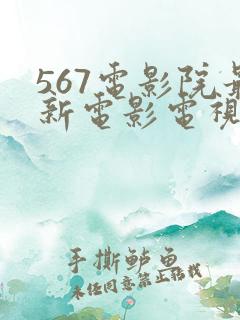 567電影院最
新電影電視
手撕鲈鱼
未经同意禁止转载